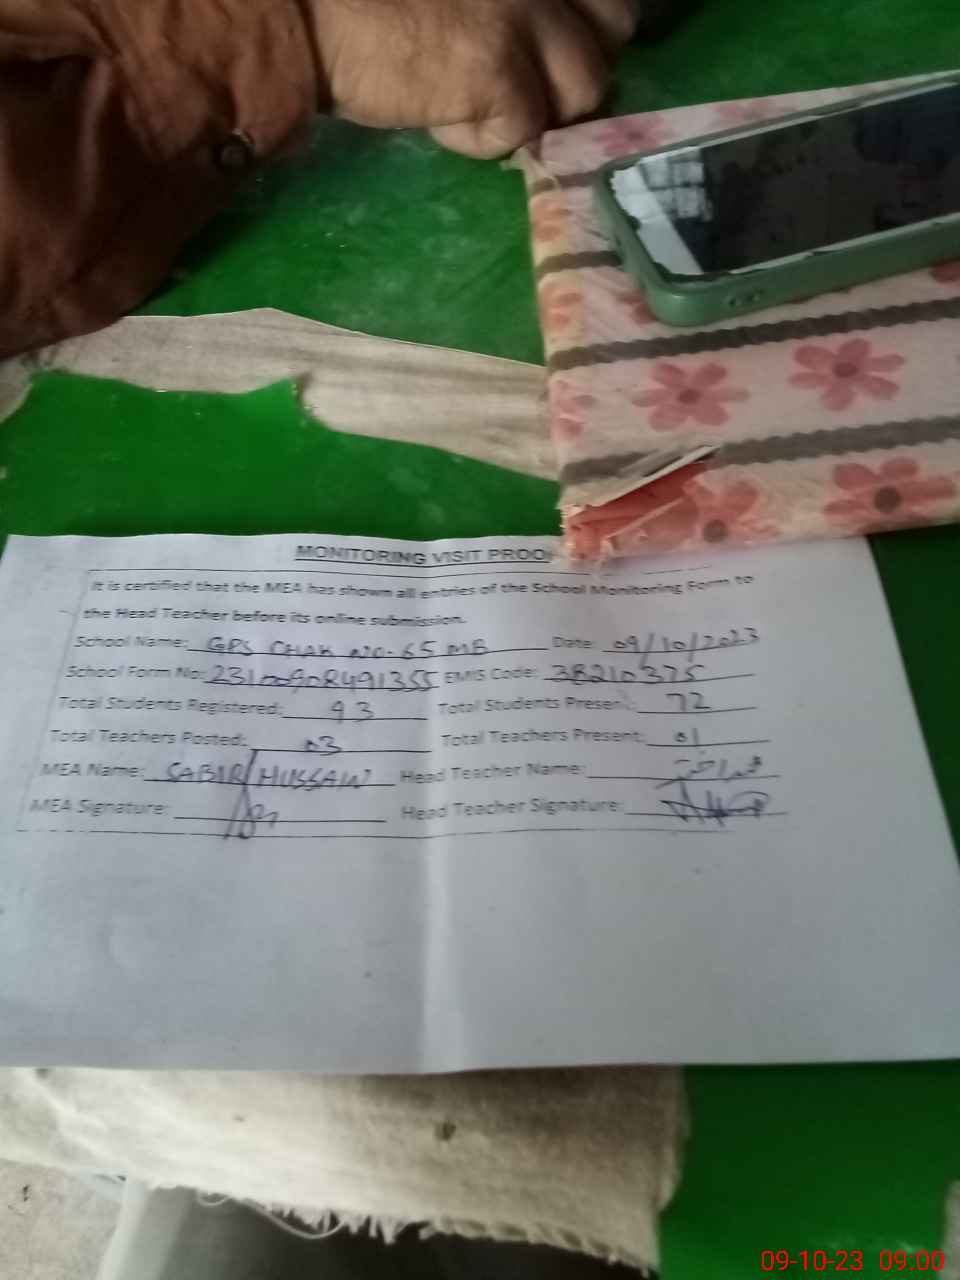 MONITORING VISIT PROOF
It is certified that the MEA has shown all entries of the School Monitoring Form to
the Head Teacher before its online submission.
School Name: GPS CHAK NO. 65 MB Date: 09/10/2023
School Form No: EMIS Code: 38210375
Total Students Registered: 93 Total Students Present: 72
Total Teachers Posted: 03 Total Teachers Present: 01
MEA Name: SABIR HUSSAIN Head Teacher Name:
MEA Signature: Head Teacher Signature:
09-10-23 09:00